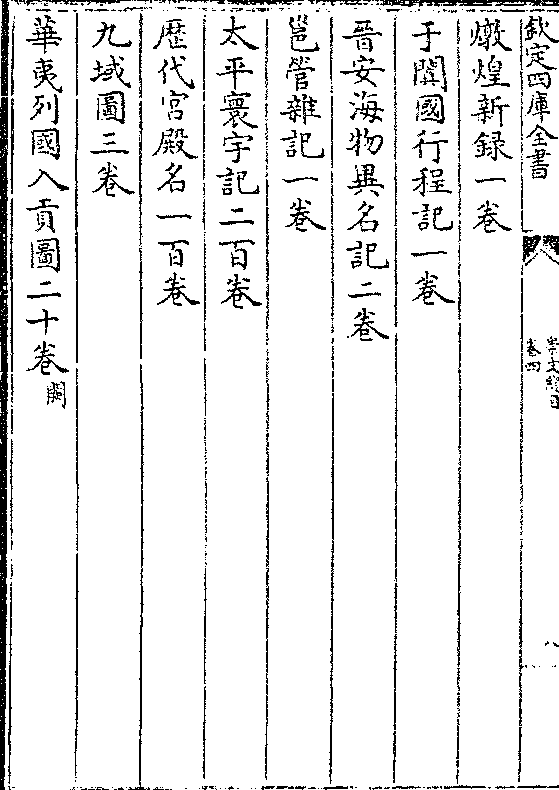 欽定四庫全書
崇文總目
卷四
八
燉煌新録一卷
于闐國行程記一卷
晉安海物異名記二卷
邕管雜記一卷
太平寰宇記二百卷
歴代宮殿名一百卷
九域圖三卷
華夷列國入貢圖二十卷闕